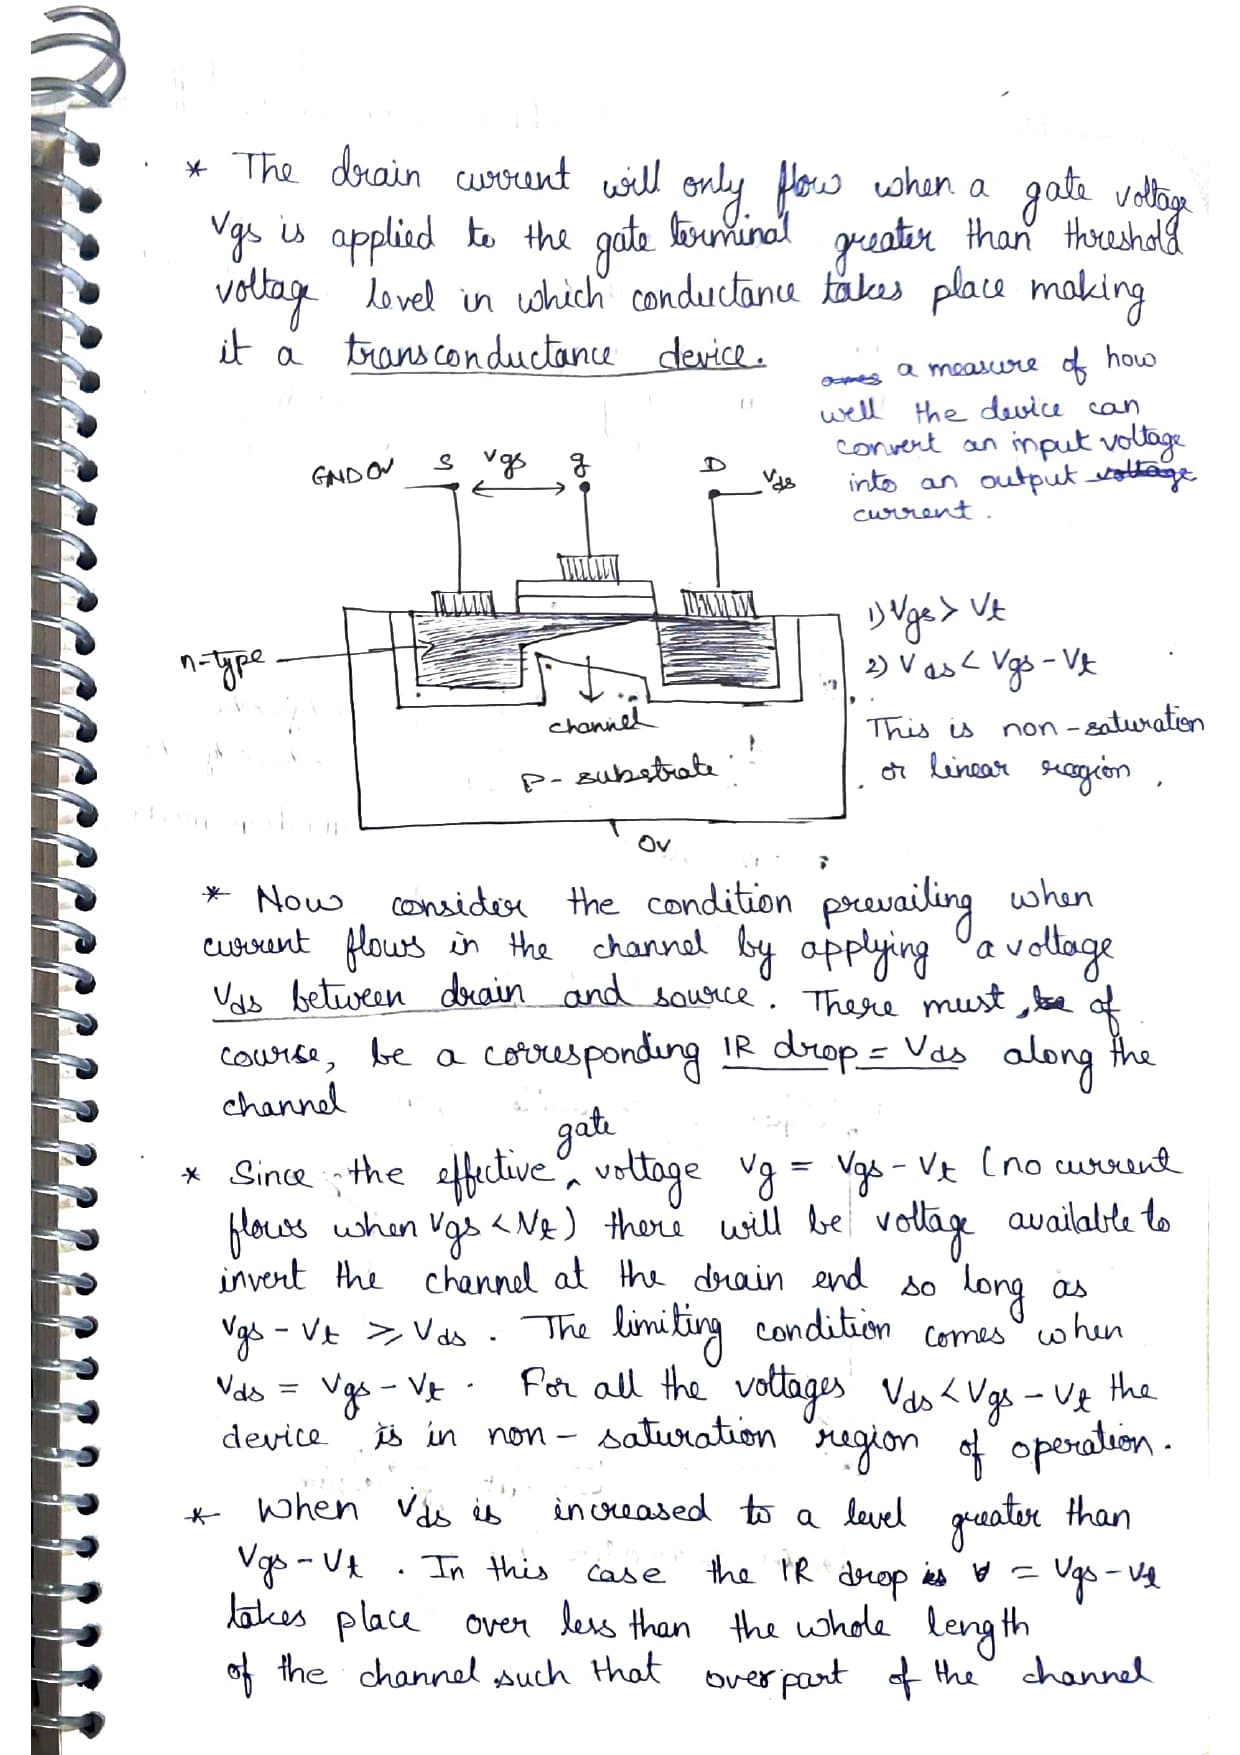 * The drain current will only flow when a gate voltage
Vgs is applied to the gate terminal greater than threshold
voltage level in which conductance takes place making
it a transconductance device.
a measure of how
well the device can
convert an input voltage
into an output voltage
current.
GND 0V S Vgs g D Vds
n-type
channel
P-substrate
0V
1) Vgs > Vt
2) Vds < Vgs - Vt
This is non-saturation
or linear region.
* Now consider the condition prevailing when
current flows in the channel by applying a voltage
Vds between drain and source. There must, be of
course, be a corresponding IR drop = Vds along the
channel
gate
* Since, the effective ^ voltage Vg = Vgs - Vt (no current
flows when Vgs < Vt) there will be voltage available to
invert the channel at the drain end so long as
Vgs - Vt ⩾ Vds. The limiting condition comes when
Vds = Vgs - Vt. For all the voltages Vds < Vgs - Vt the
device is in non-saturation region of operation.
* When Vds is increased to a level greater than
Vgs - Vt. In this case the IR drop is = Vgs - Vt
takes place over less than the whole length
of the channel such that over part of the channel